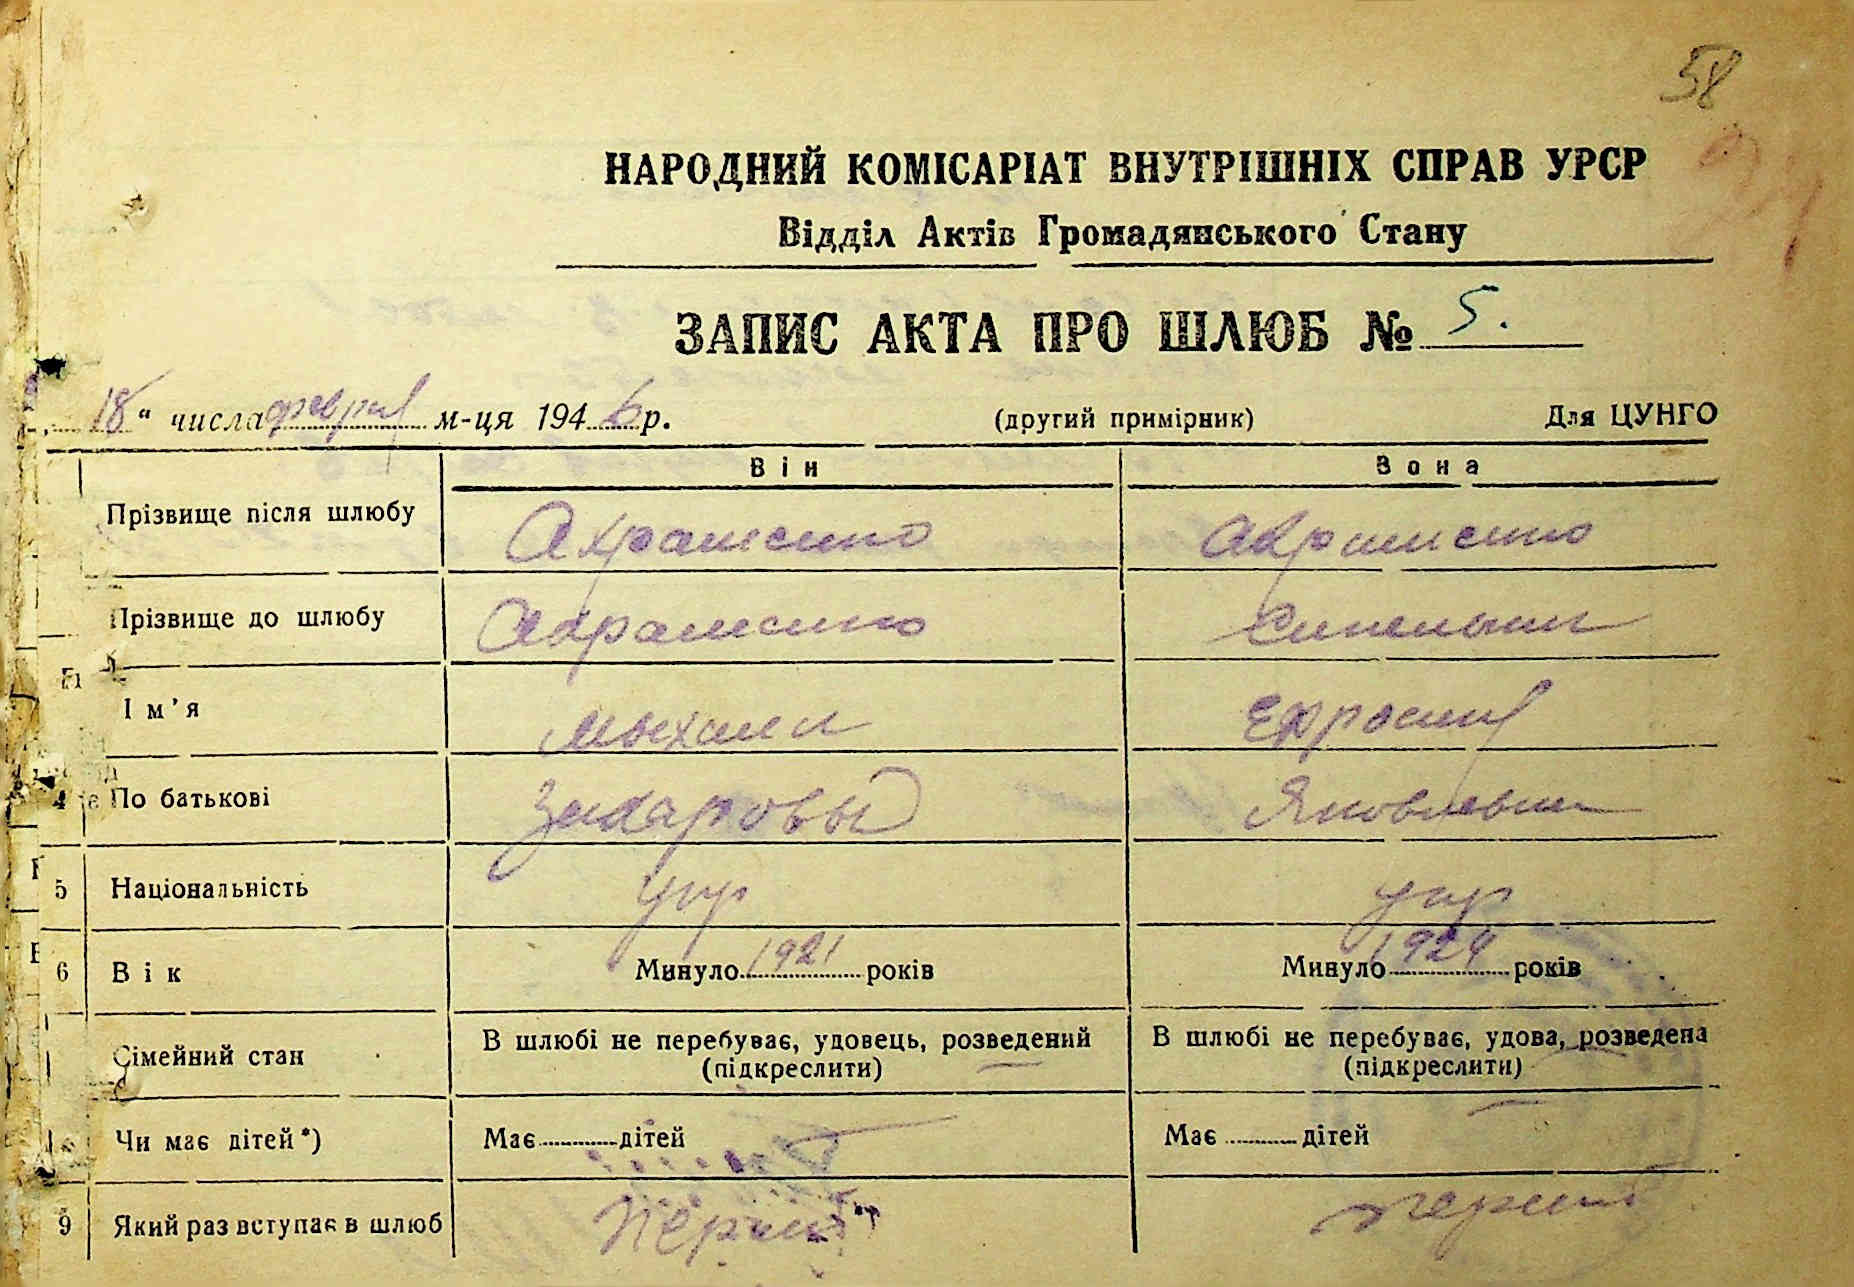 58
НАРОДНИЙ КОМІСАРІАТ ВНУТРІШНІХ СПРАВ УРСР
Відділ Актів Громадянського Стану
ЗАПИС АКТА ПРО ШЛЮБ № 5.
18 " числа феврал м-ця 1946 р. (другий примірник) Для ЦУНГО
Він Вона
Прізвище після шлюбу Абраменко Абраменко
Прізвище до шлюбу Абраменко
Ім'я Ефросин
4 По батькові Захаровы Яковлевна
5 Національність укр укр
6 Вік Минуло 1921 років Минуло 1924 років
Сімейний стан В шлюбі не перебуває, удовець, розведений В шлюбі не перебуває, удова, розведена
(підкреслити) (підкреслити)
Чи має дітей *) Має дітей Має дітей
9 Який раз вступає в шлюб Перший перший